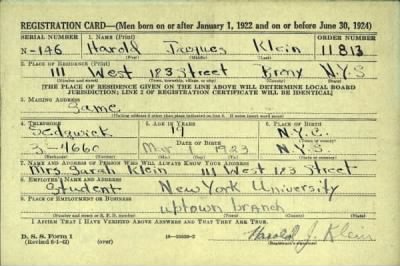 REGISTRATION CARD—(Men born on or after January 1, 1922 and on or before June 30, 1924)
SERIAL NUMBER 1. NAME (Print) ORDER NUMBER
N-146 Harold Jacques Klein 11813
(First) (Middle) (Last)
2. PLACE OF RESIDENCE (Print)
111 West 123 Street Bronx N.Y.S
(Number and street) (Town, township, village, or city) (County) (State)
[THE PLACE OF RESIDENCE GIVEN ON THE LINE ABOVE WILL DETERMINE LOCAL BOARD
JURISDICTION; LINE 2 OF REGISTRATION CERTIFICATE WILL BE IDENTICAL]
3. MAILING ADDRESS
Same
[Mailing address if other than place indicated on line 2. If same insert word same]
4. TELEPHONE 5. AGE IN YEARS 6. PLACE OF BIRTH
Sedgwick 19 N.Y.C.
DATE OF BIRTH (Town or county)
3-4660 Mar 1923 N.Y.S.
(Exchange) (Number) (Mo.) (Day) (Yr.) (State or country)
7. NAME AND ADDRESS OF PERSON WHO WILL ALWAYS KNOW YOUR ADDRESS
Mrs. Sarah Klein 111 West 123 Street
8. EMPLOYER'S NAME AND ADDRESS
Student New York University
9. PLACE OF EMPLOYMENT OR BUSINESS
uptown branch
(Number and street or R. F. D. number) (Town) (County) (State)
I AFFIRM THAT I HAVE VERIFIED ABOVE ANSWERS AND THAT THEY ARE TRUE.
D. S. S. Form 1
(Revised 6-1-42) (over) Harold J. Klein
(Registrant's signature)